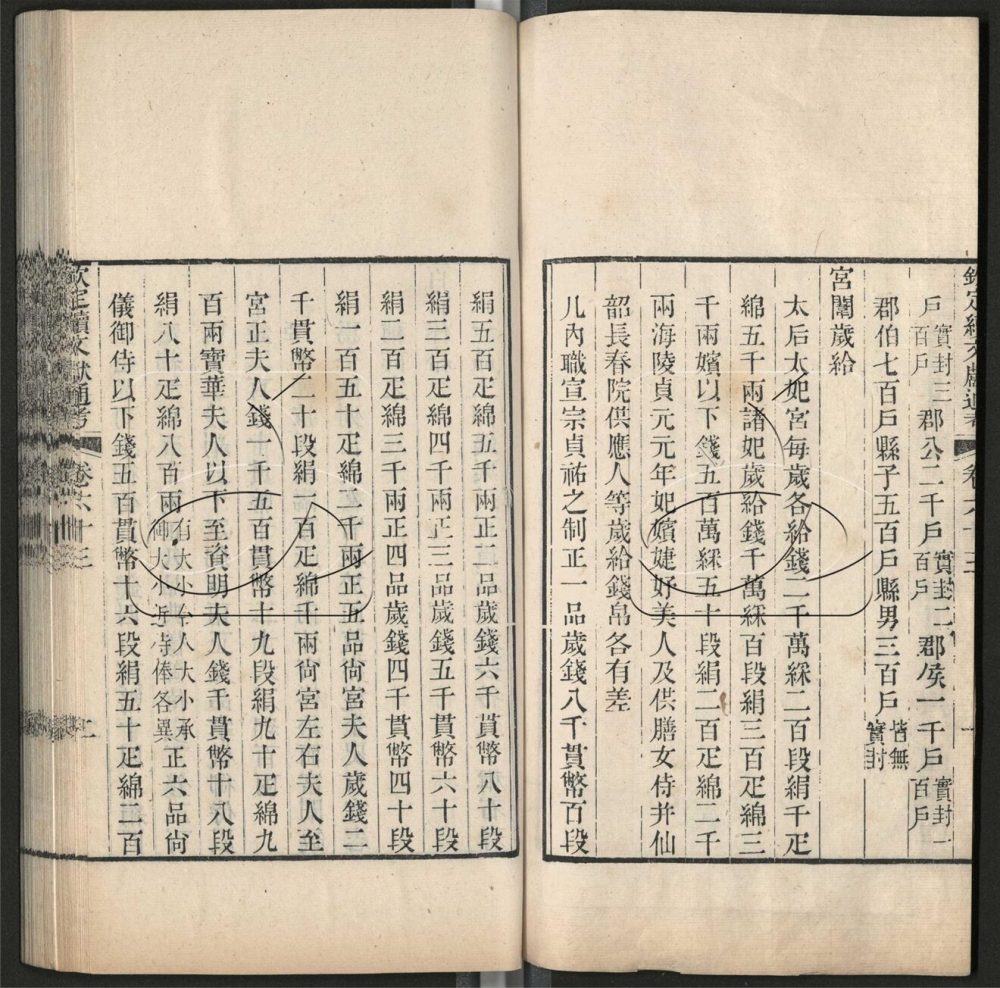 欽定續文獻通考 卷六十三
戶實封三百戶郡公二千戶實封二百戶郡侯一千戶實封一百戶
郡伯七百戶縣子五百戶縣男三百戶皆無實封
宮闈歲給
太后太妃宮每歲各給錢二千萬綵二百段絹千疋
綿五千兩諸妃歲給錢千萬綵百段絹三百疋綿三
千兩嬪以下錢五百萬綵五十段絹二百疋綿二千
兩海陵貞元元年妃嬪婕妤美人及供膳女侍并仙
韶長春院供應人等歲給錢帛各有差
凡內職宣宗貞祐之制正一品歲錢八千貫幣百段
絹五百疋綿五千兩正二品歲錢六千貫幣八十段
絹三百疋綿四千兩正三品歲錢五千貫幣六十段
絹二百疋綿三千兩正四品歲錢四千貫幣四十段
絹一百五十疋綿二千兩正五品尙宮夫人歲錢二
千貫幣二十段絹一百疋綿千兩尙宮左右夫人至
宮正夫人錢一千五百貫幣十九段絹九十疋綿九
百兩寶華夫人以下至資明夫人錢千貫幣十八段
絹八十疋綿八百兩有大小令人大小承御大小近侍俸各異正六品尙
儀御侍以下錢五百貫幣十六段絹五十疋綿二百
欽定續文獻通考 卷六十三